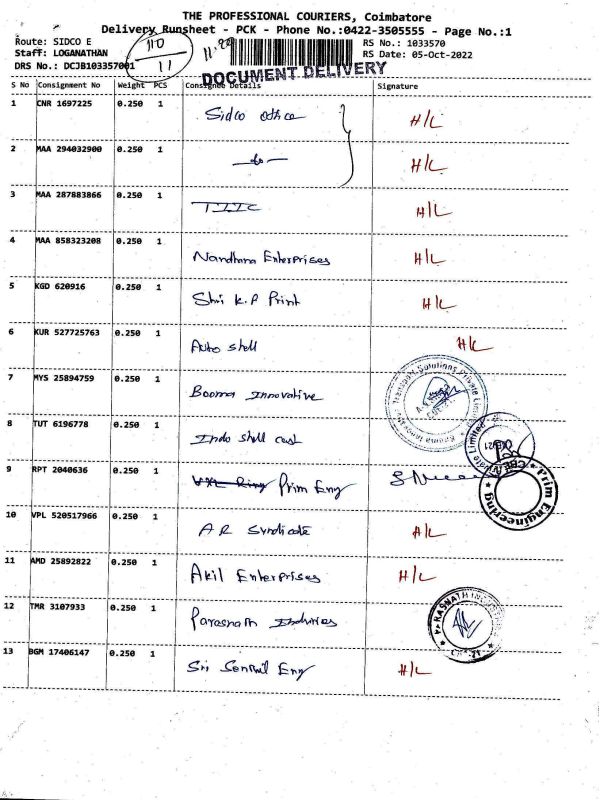 THE PROFESSIONAL COURIERS, Coimbatore
Delivery Runsheet - PCK - Phone No.:0422-3505555 - Page No.:1
Route: SIDCO E
Staff: LOGANATHAN
DRS No.: DCJB103357001
110
11
RS No.: 1033570
RS Date: 05-Oct-2022
DOCUMENT DELIVERY
S No Consignment No Weight PCS Consignee Details Signature
1 CNR 1697225 0.250 1 Sidco office H/L
2 MAA 294032900 0.250 1 -do- H/L
3 MAA 287883866 0.250 1 TIIC H/L
4 MAA 858323208 0.250 1 Nandhana Enterprises H/L
5 KGD 620916 0.250 1 Shri K.P Print H/L
6 KUR 527725763 0.250 1 Auto shell H/L
7 MYS 25894759 0.250 1 Booma Innovative
Booma Innovative Transport Solutions Private Limited
8 TUT 6196778 0.250 1 Indo shell cast
Private Limited
9 RPT 2040636 0.250 1 Prim Eng
Prim Engineering
CBE
10 VPL 520517966 0.250 1 AR Syndicate H/L
11 AMD 25892822 0.250 1 Akil Enterprises H/L
12 TMR 3107933 0.250 1 Parasnath Industries
PARASNATH INDUSTRIES
13 BGM 17406147 0.250 1 Sri Senthil Eng H/L